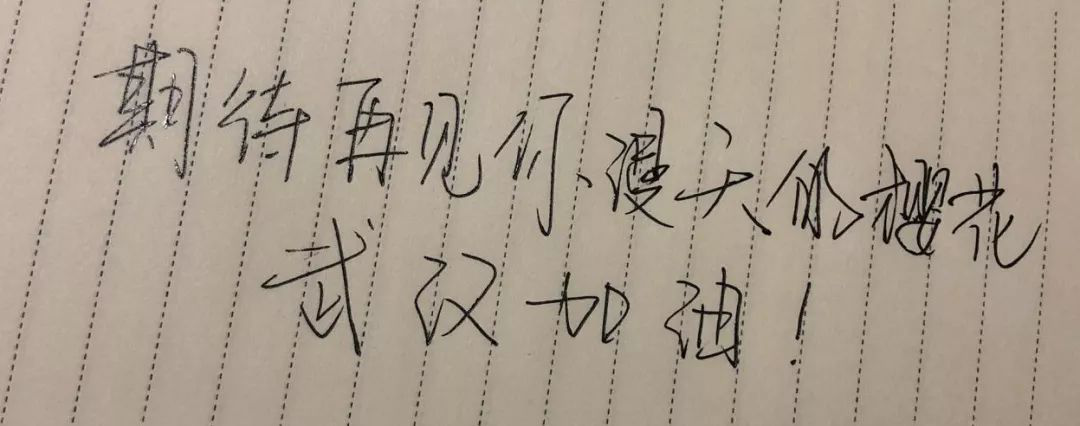 期待再见你、漫天的樱花
武汉加油！